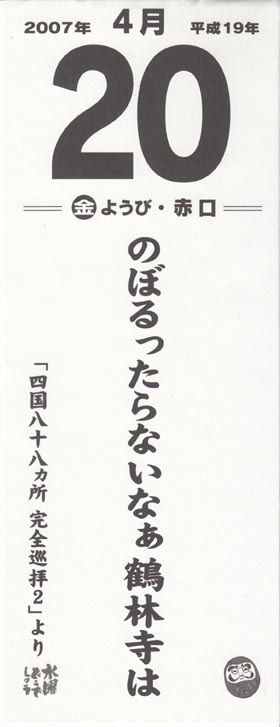 2007年 4月 平成19年
20
金ようび・赤口
のぼるったらないなぁ鶴林寺は
「四国八十八カ所 完全巡拝2」より
水曜
どうで
しょう